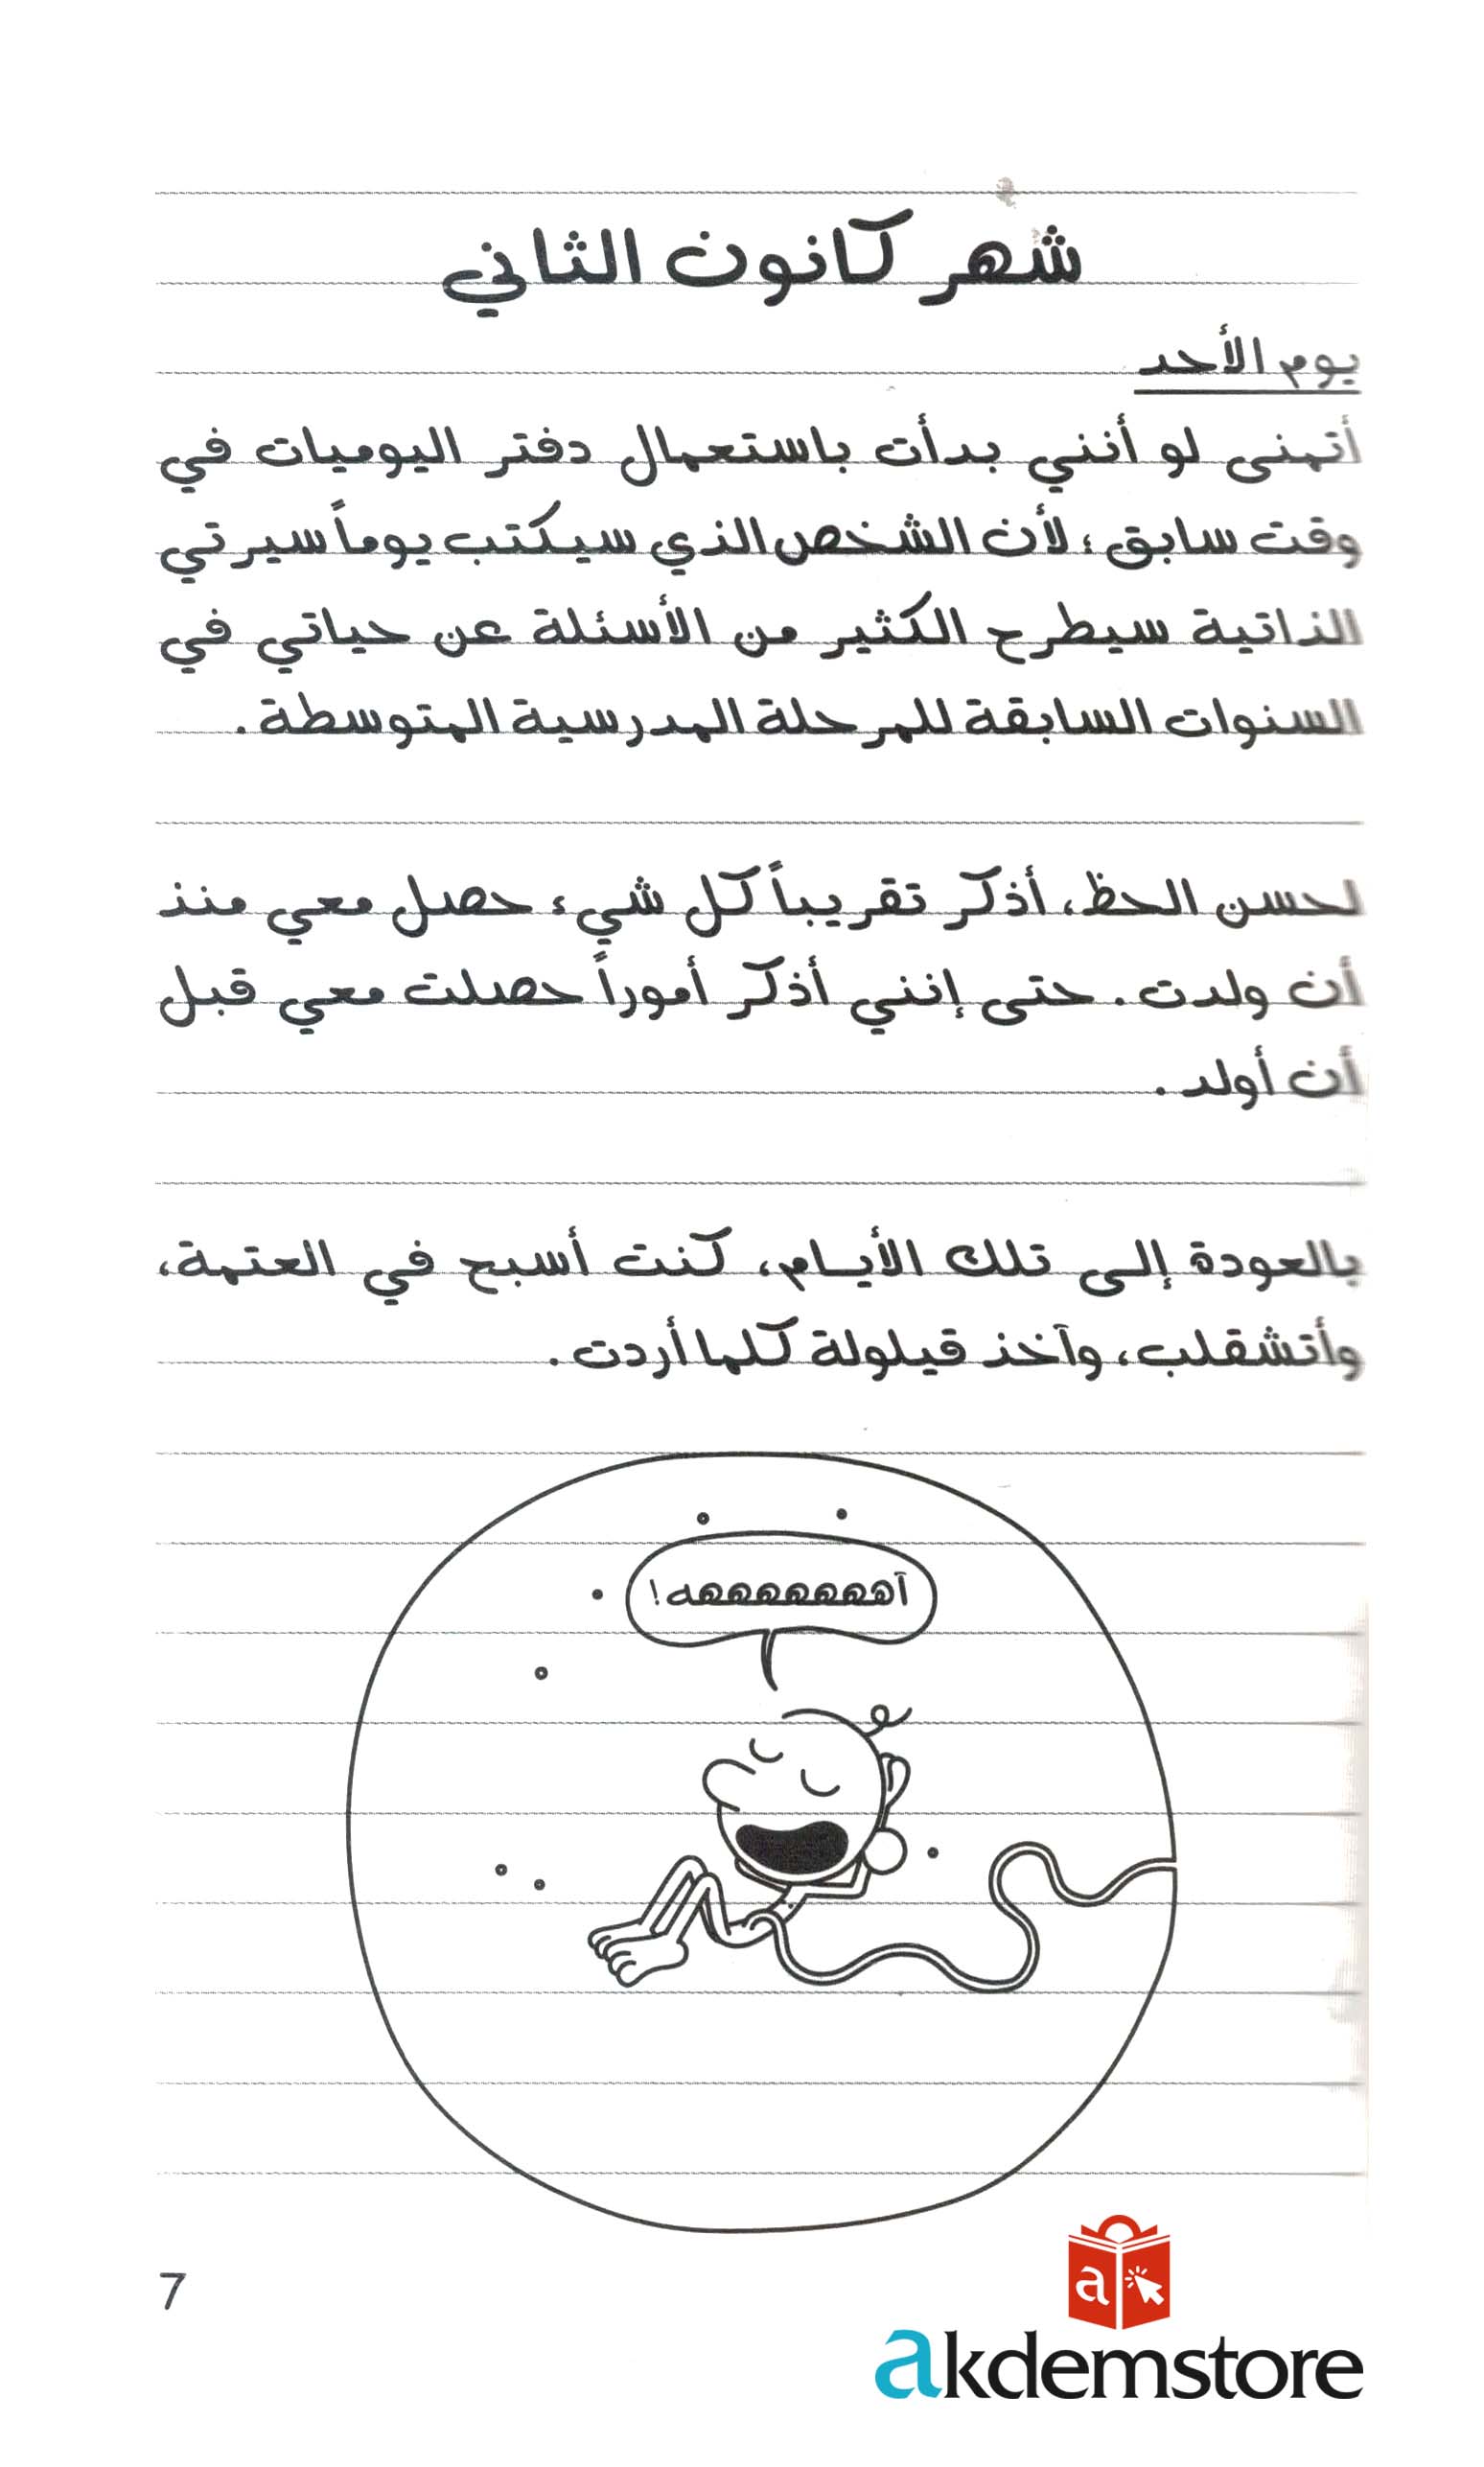 شهر كانون الثاني
يوم الأحد
أتمنى لو أنني بدأت باستعمال دفتر اليوميات في
وقت سابق؛ لأن الشخص الذي سيكتب يوماً سيرتي
الذاتية سيطرح الكثير من الأسئلة عن حياتي في
السنوات السابقة للمرحلة المدرسية المتوسطة.
لحسن الحظ، أذكر تقريباً كل شيء حصل معي منذ
أن ولدت. حتى إنني أذكر أموراً حصلت معي قبل
أن أولد.
بالعودة إلى تلك الأيام، كنت أسبح في العتمة،
وأتشقلب، وآخذ قيلولة كلما أردت.
آههههههههه!
7
a
akdemstore